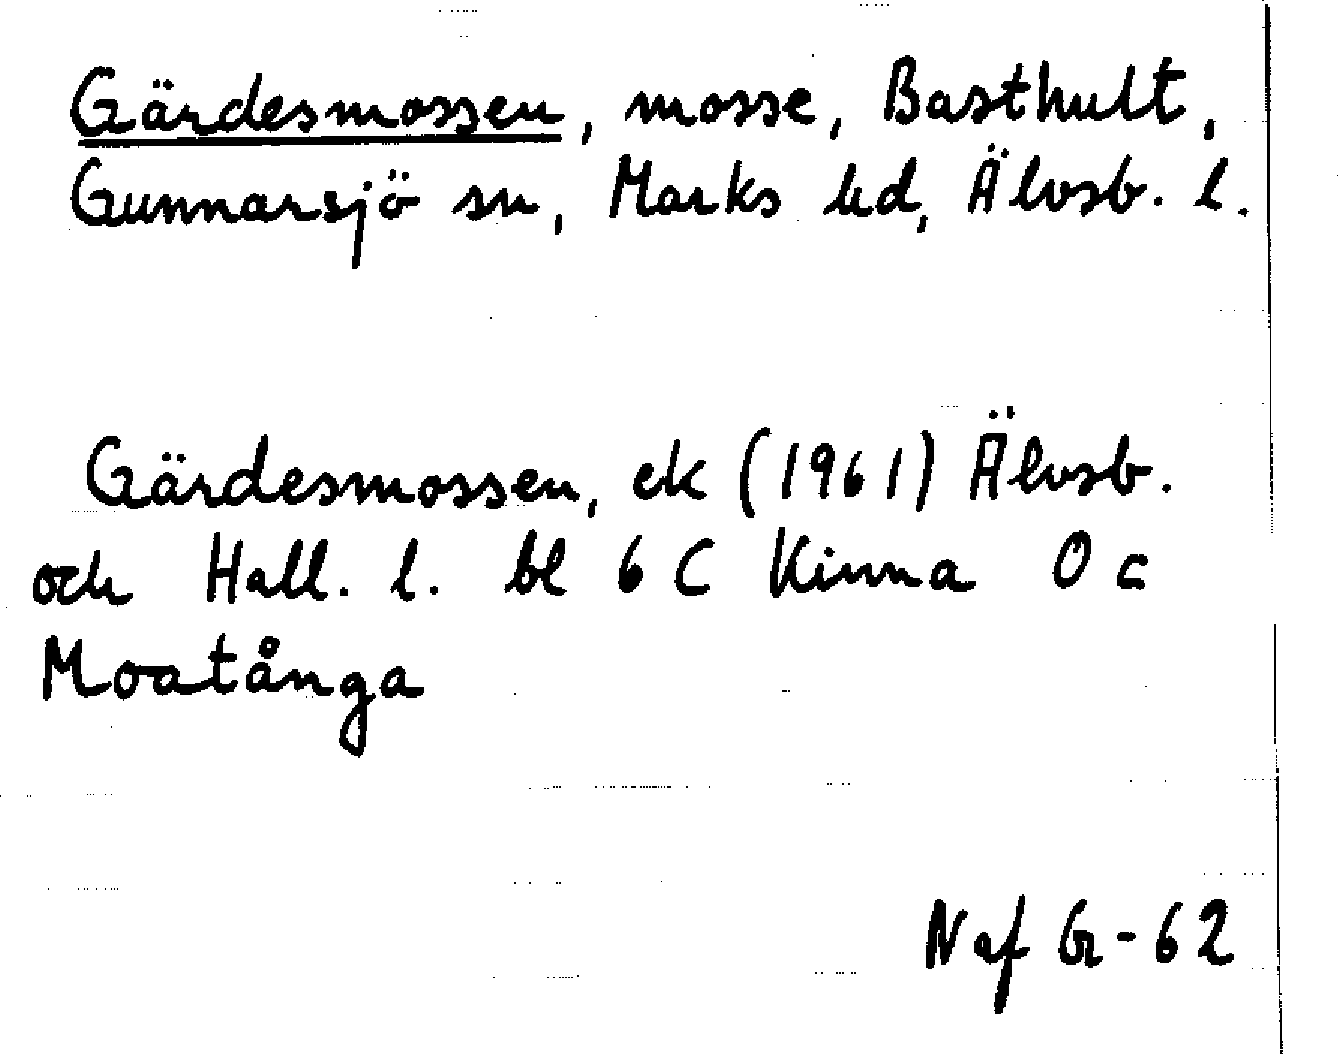 Gärdesmossen, mosse, Basthult,
Gunnarsjö sn, Marks hd, Älvsb. l.
Gärdesmossen, ek (1961) Älvsb.
och Hall. l. bl 6 C Kinna 0 c
Moatånga
Naf Gr-62